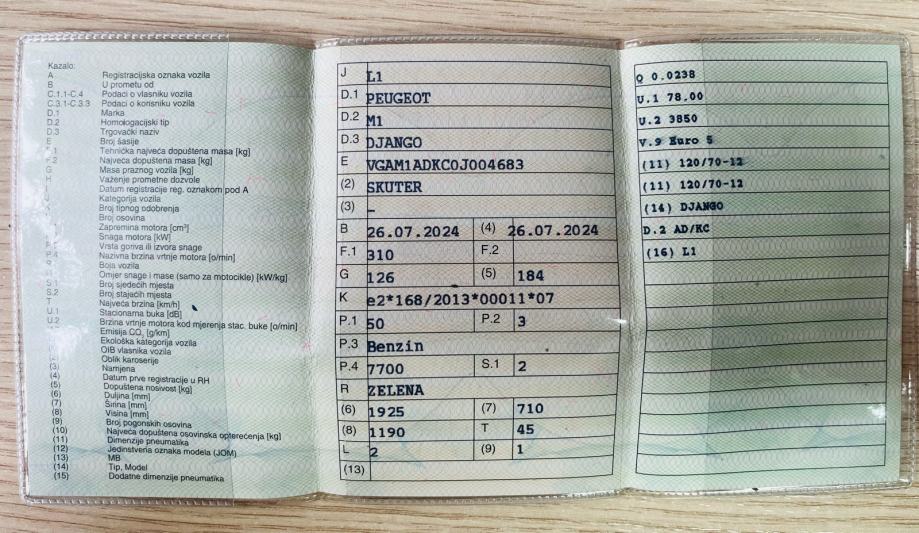 Kazalo:
A Registracijska oznaka vozila
B U prometu od
C.1.1-C.4 Podaci o vlasniku vozila
C.3.1-C.3.3 Podaci o korisniku vozila
D.1 Marka
D.2 Homologacijski tip
D.3 Trgovački naziv
E Broj šasije
F.1 Tehnička najveća dopuštena masa [kg]
F.2 Najveća dopuštena masa [kg]
G Masa praznog vozila [kg]
H Važenje prometne dozvole
Datum registracije reg. oznakom pod A
Kategorija vozila
Broj tipnog odobrenja
Broj osovina
Zapremina motora [cm³]
Snaga motora [kW]
Vrsta goriva ili izvora snage
P.4 Nazivna brzina vrtnje motora [o/min]
Boja vozila
Omjer snage i mase (samo za motocikle) [kW/kg]
S.1 Broj sjedećih mjesta
S.2 Broj stajaćih mjesta
T Najveća brzina [km/h]
U.1 Stacionarna buka [dB]
U.2 Brzina vrtnje motora kod mjerenja stac. buke [o/min]
Emisija CO₂ [g/km]
Ekološka kategorija vozila
OIB vlasnika vozila
Oblik karoserije
(3) Namjena
(4) Datum prve registracije u RH
(5) Dopuštena nosivost [kg]
(6) Duljina [mm]
(7) Širina [mm]
(8) Visina [mm]
(9) Broj pogonskih osovina
(10) Najveća dopuštena osovinska opterećenja [kg]
(11) Dimenzije pneumatika
(12) Jedinstvena oznaka modela (JOM)
(13) MB
(14) Tip, Model
(15) Dodatne dimenzije pneumatika
J L1
D.1 PEUGEOT
D.2 M1
D.3 DJANGO
E VGAM1ADKC0J004683
(2) SKUTER
(3) –
B 26.07.2024 (4) 26.07.2024
F.1 310 F.2
G 126 (5) 184
K e2*168/2013*00011*07
P.1 50 P.2 3
P.3 Benzin
P.4 7700 S.1 2
R ZELENA
(6) 1925 (7) 710
(8) 1190 T 45
L 2 (9) 1
(13)
Q 0.0238
U.1 78.00
U.2 3850
V.9 Euro 5
(11) 120/70-12
(11) 120/70-12
(14) DJANGO
D.2 AD/KC
(16) L1